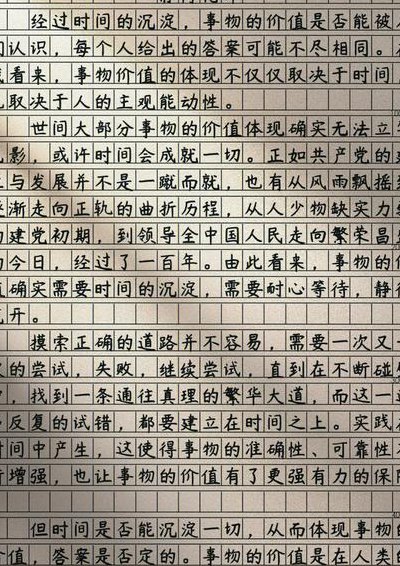 经过时间的沉淀，事物的价值是否能被
们认识，每个人给出的答案可能不尽相同。
看来，事物价值的体现不仅仅取决于时间
取决于人的主观能动性。
世间大部分事物的价值体现确实无法立
见影，或许时间会成就一切。正如共产党的
与发展并不是一蹴而就，也有从风雨飘摇
渐走向正轨的曲折历程，从人少物缺实力
的建党初期，到领导全中国人民走向繁荣昌
的今日，经过了一百年。由此看来，事物的
值确实需要时间的沉淀，需要耐心等待，静
开。
摸索正确的道路并不容易，需要一次又一
的尝试，失败，继续尝试，直到在不断碰
，找到一条通往真理的繁华大道，而这一
反复的试错，都要建立在时间之上。实践
时间中产生，这使得事物的准确性、可靠性
增强，也让事物的价值有了更强有力的保
但时间是否能沉淀一切，从而体现事物
价值，答案是否定的。事物的价值是在人类